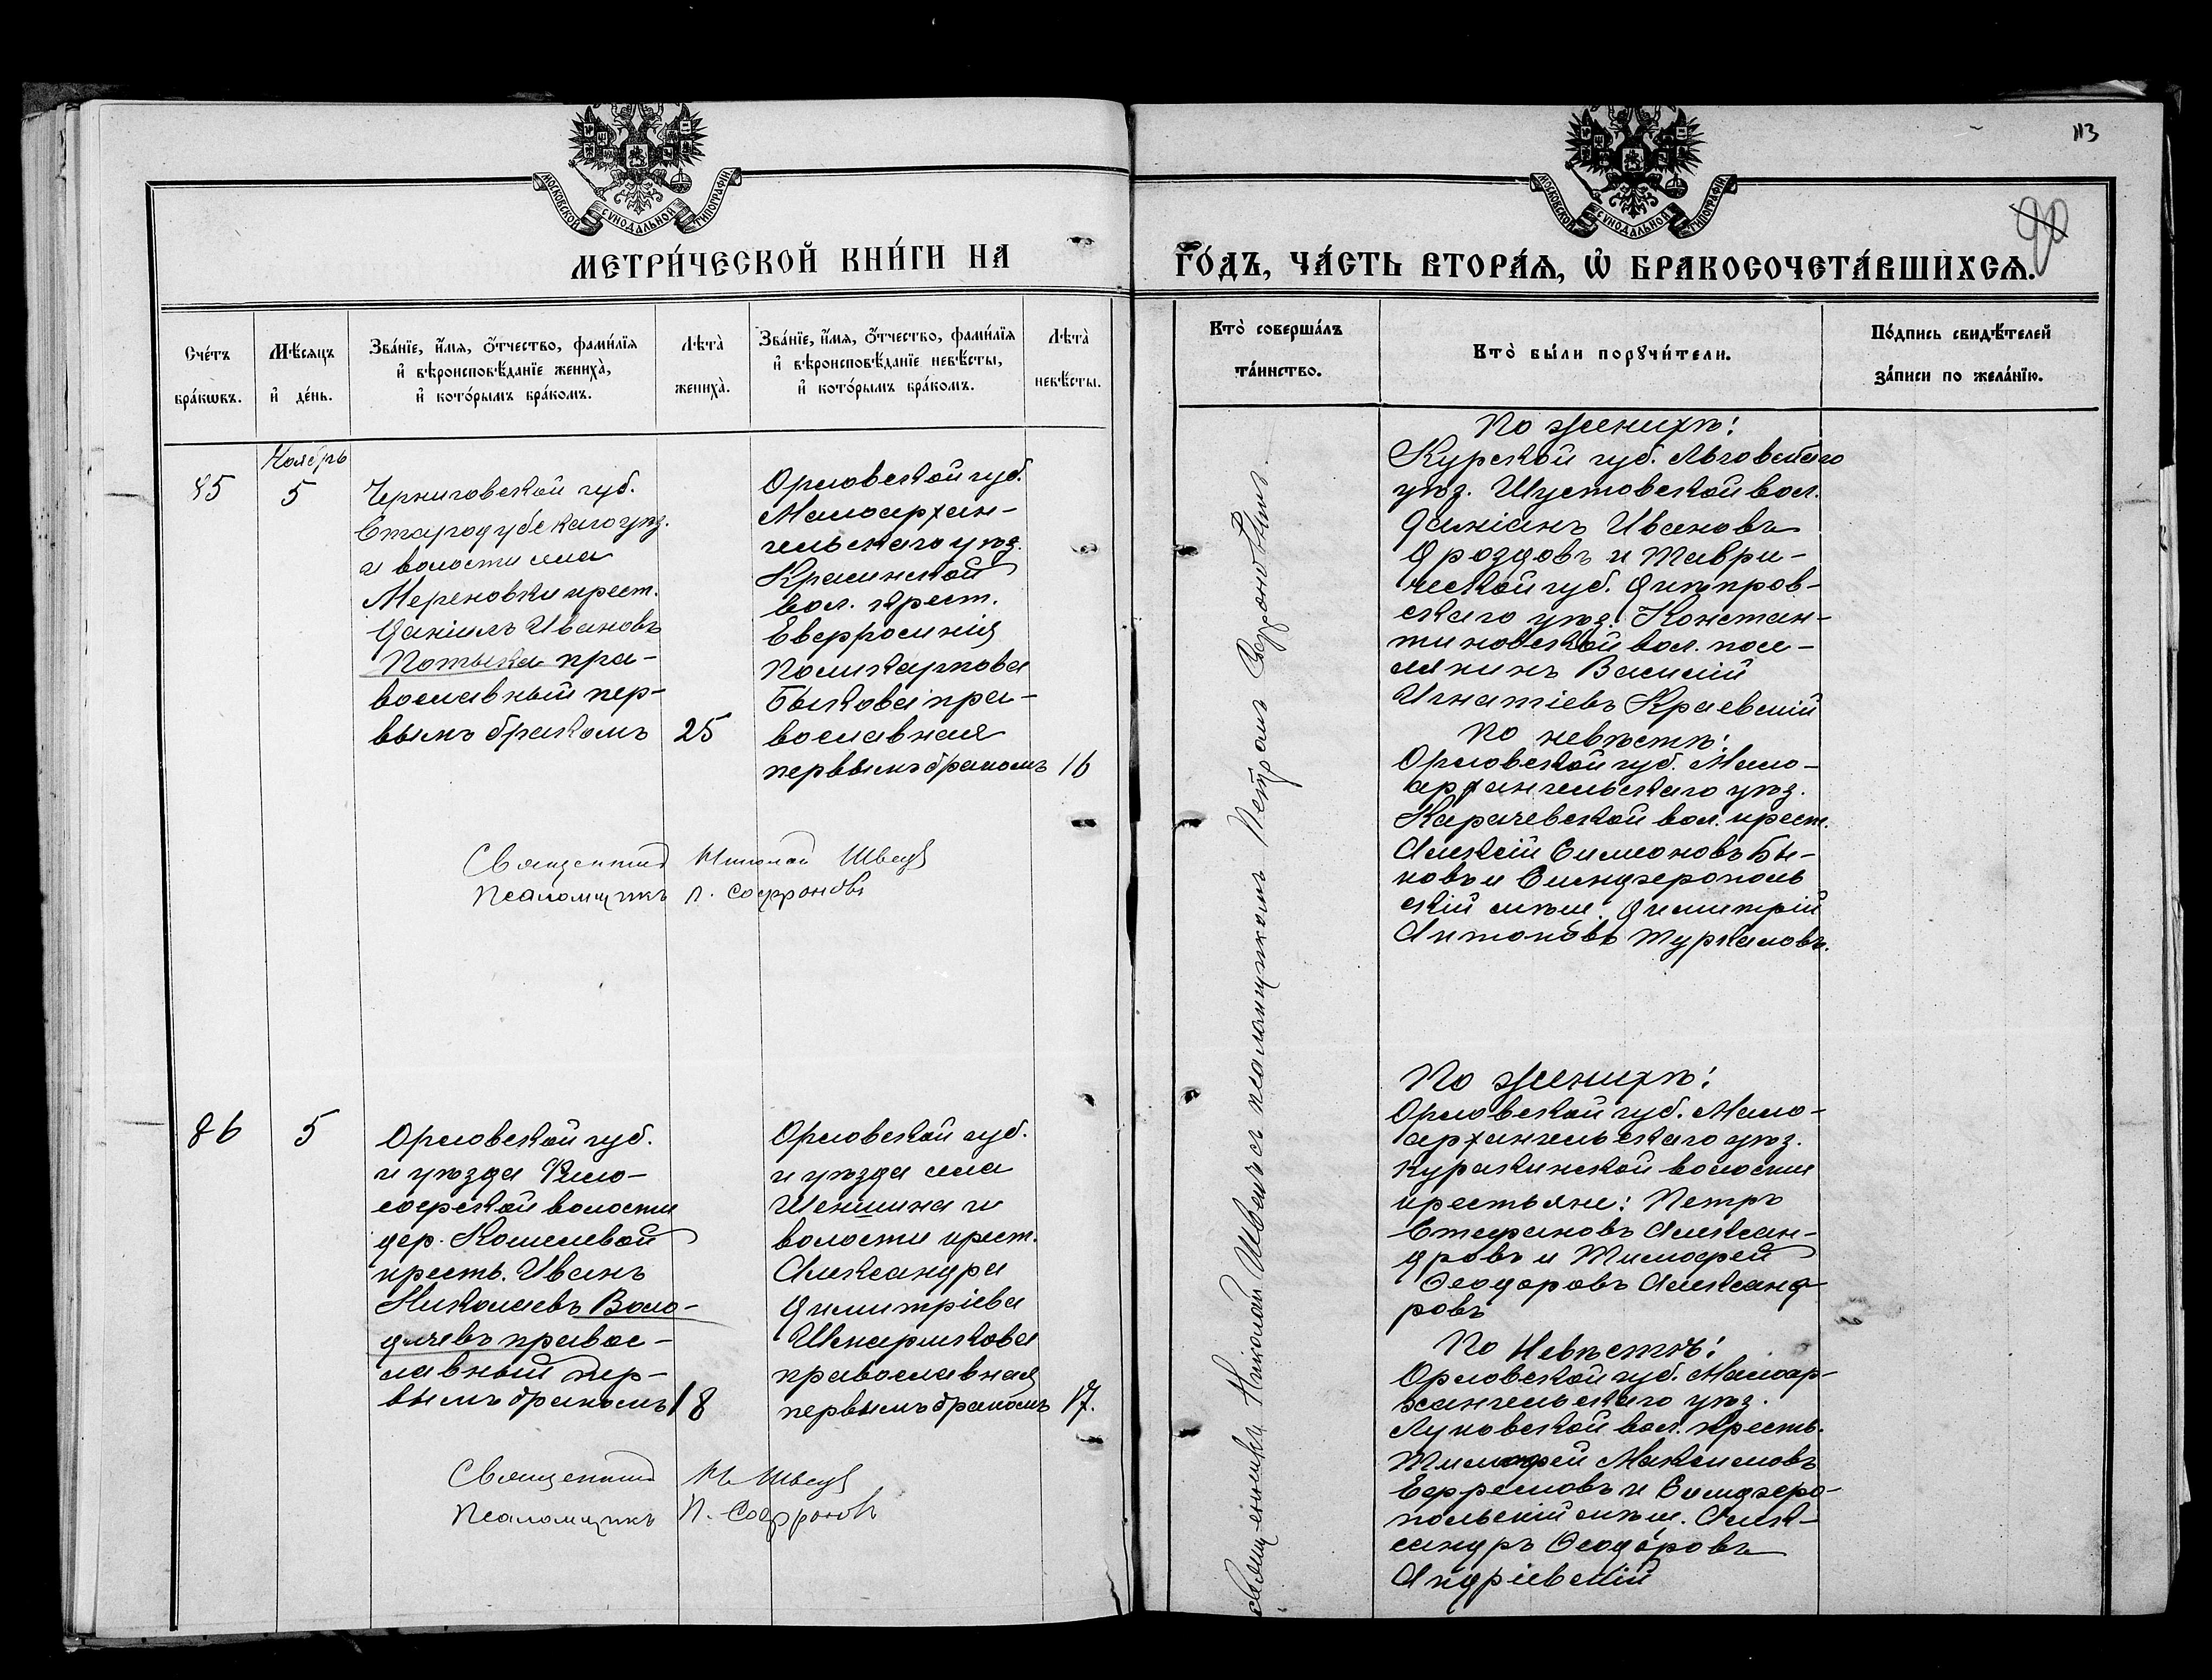 113
90
МОСКОВСКОЙ СУНОДАЛЬНОЙ ТИПОГРАФІИ
МОСКОВСКОЙ СУНОДАЛЬНОЙ ТИПОГРАФІИ
МЕТРИ́ЧЕСКОЙ КНИ́ГИ НА
ГО́ДЪ, ЧА́СТЬ ВТОРА́Ѧ, Ѡ҆ БРАКОСОЧЕТА́ВШИХСѦ.
Сче́тъ
бра́кѡвъ.
Мѣ́сяцъ
и҆ де́нь.
Зва́нїе, и҆́мя, ѻ҆́тчество, фами́лїя
и҆ вѣроисповѣ́данїе жениха̀,
и҆ кото́рымъ бра́комъ.
Лѣта̀
жениха̀.
Зва́нїе, и҆́мя, ѻ҆́тчество, фами́лїя
и҆ вѣроисповѣ́данїе невѣ́сты,
и҆ кото́рымъ бра́комъ.
Лѣта̀
невѣ́сты.
Кто̀ соверша́лъ
та́инство.
Кто̀ бы́ли порꙋчи́тели.
По́дпись свидѣ́телей
за́писи по жела́нїю.
Ноябрь
85
5
Черниговской губ.
Стародубскаго уѣз.
и волости села
Мереновки крест.
Даніилъ Ивановъ
Потыка пра-
вославный пер-
вымъ бракомъ
25
Орловской губ.
Малоархан-
гельскаго уѣз.
Красинской
вол. крест.
Евфросинія
Поликарпова
Быкова пра-
вославная
первымъ бракомъ
16
Священникъ Николай Швецъ
Псаломщикъ П. Софроновъ
По женихѣ:
Курской губ. Льговскаго
уѣз. Шустовской вол.
Даміанъ Ивановъ
Дроздовъ и Таври-
ческой губ. Днѣпров-
скаго уѣз. Констан-
тиновской вол. посе-
лянинъ Василій
Игнатіевъ Краевскій
По невѣстѣ:
Орловской губ. Мало-
архангельскаго уѣз.
Карачевской вол. крест.
Алексій Симеоновъ Бы-
ковъ и Симферополь
скій мѣщ. Димитрій
Антоновъ Туркаловъ.
86
5
Орловской губ.
и уѣзда Фило-
софской волости
дер. Кошелевой
кресть. Иванъ
Николаевъ Воло-
дичевъ правос-
лавный пер-
вымъ бракомъ
18
Орловской губ.
и уѣзда села
Шеншина и
волости крест.
Александра
Димитріева
Шкарликова
православная
первымъ бракомъ
17.
Священникъ Н. Швецъ
Псаломщикъ П. Софроновъ
По женихѣ:
Орловской губ. Мало-
архангельскаго уѣз.
Куракинской волости
крестьяне: Петръ
Стефановъ Алексан-
дровъ и Тимофей
Ѳеодоровъ Александ-
ровъ
По Невѣстѣ:
Орловской губ. Малоар-
хангельскаго уѣз.
Луковской вол. кресть.
Тимофей Максимовъ
Ефремовъ и Симферо-
польскій мѣщ. Алек-
сандръ Ѳеодоровъ
Андріевскій
Священника Николай Швецъ съ псаломщикомъ Петромъ Софроновымъ.